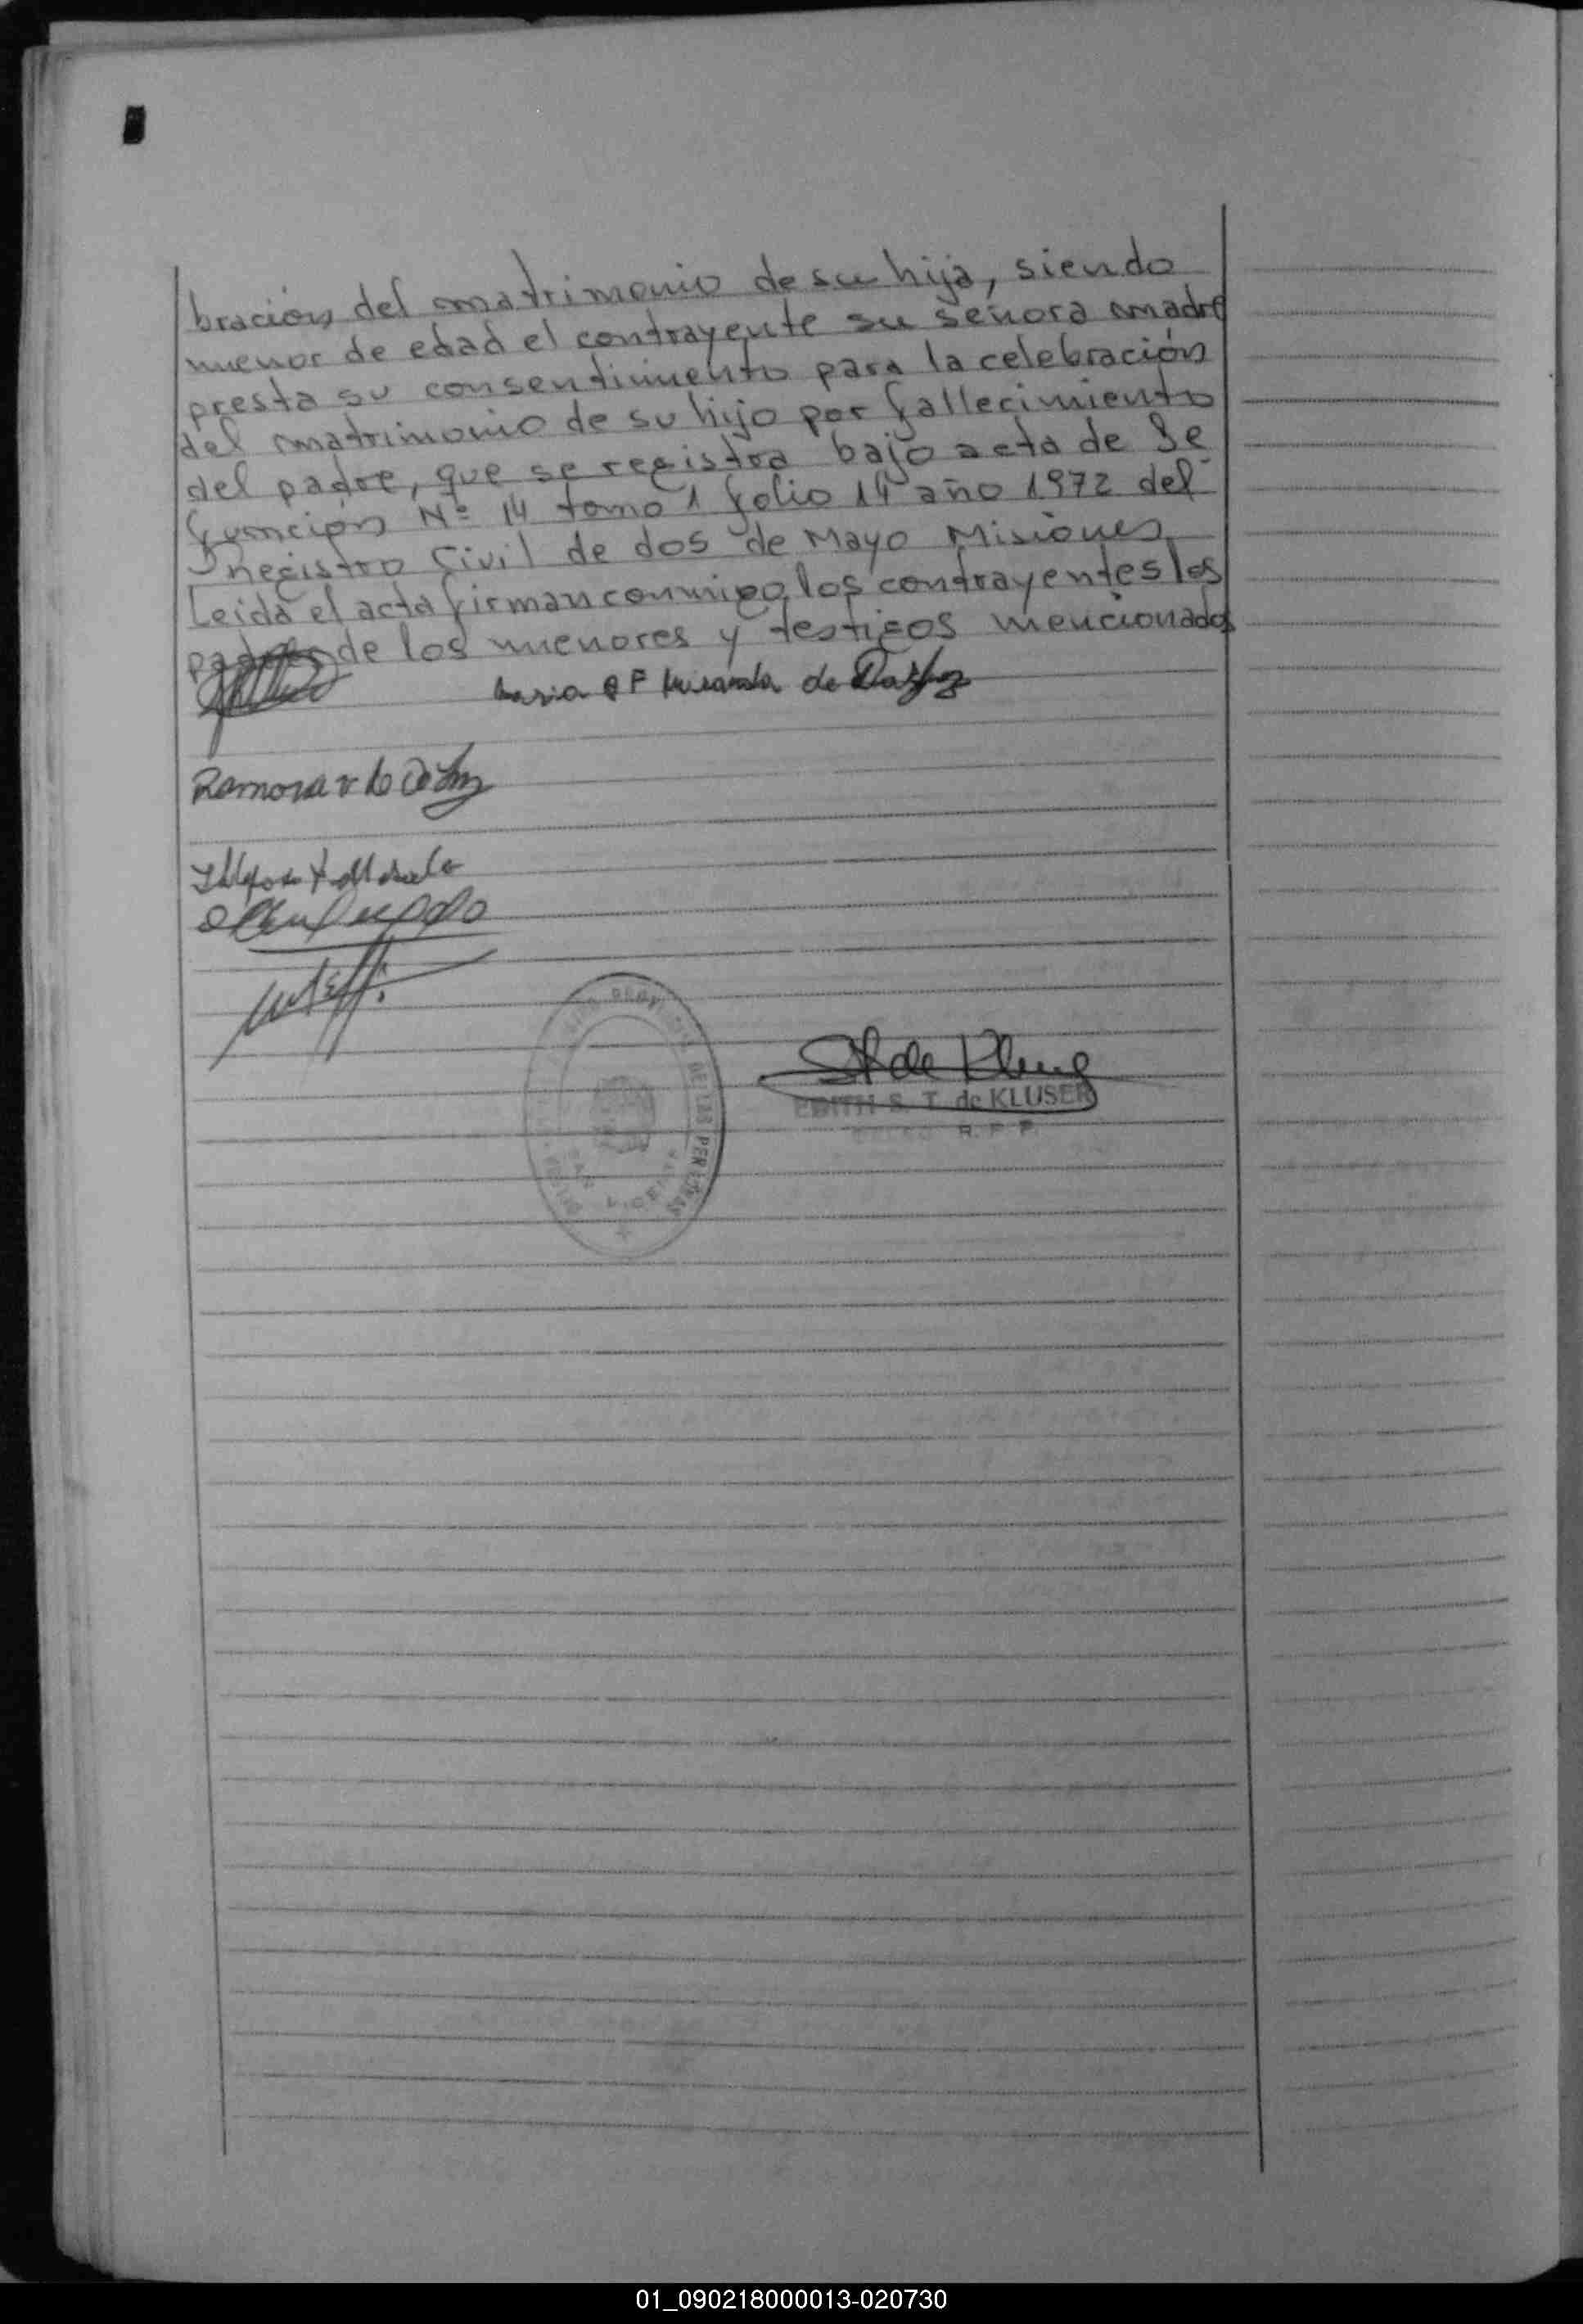 bración del matrimonio de su hija, siendo
menor de edad el contrayente su señora madre
presta su consentimiento para la celebración
del matrimonio de su hijo por fallecimiento
del padre, que se registra bajo acta de De
función Nº 14 tomo 1 folio 14 año 1972 del
Registro Civil de dos de Mayo Misiones
Leida el acta firman conmigo los contrayentes los
padres de los menores y testigos mencionados
Maria F Miranda de
Ramona v de
St de Kluser
EDITH S. T. de KLUSER
R. P. P.
DE LAS PERSONAS
01_090218000013-020730